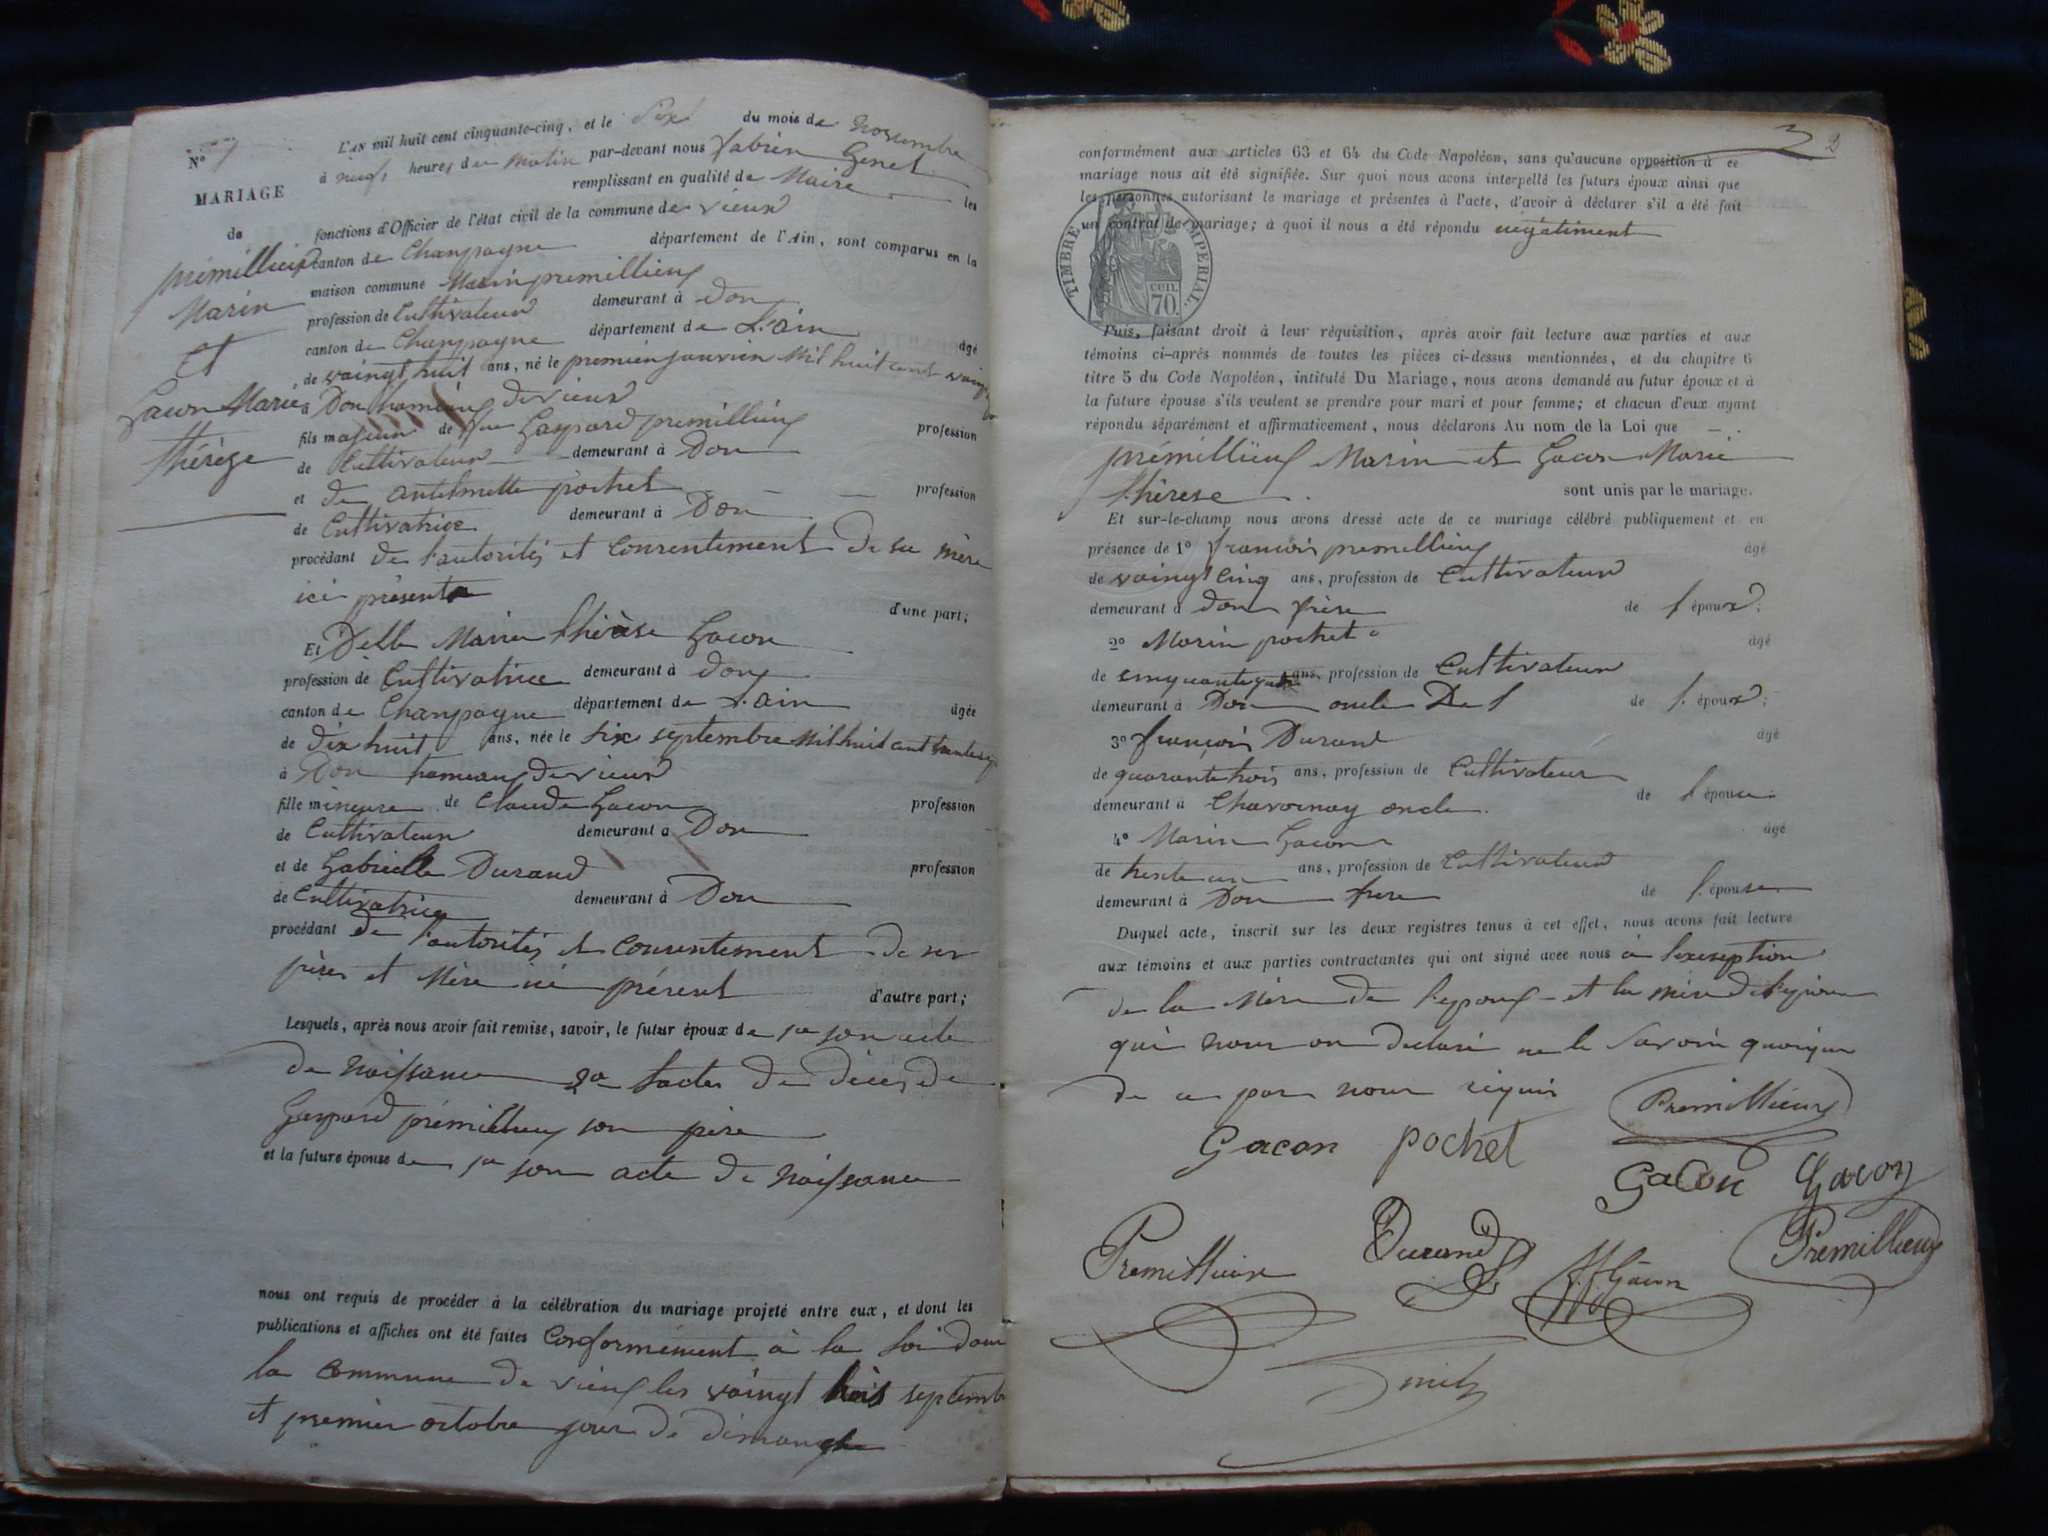 L'AN mil huit cent cinquante-cinq, et le Six du mois de novembre
N° 7
à neuf heures du matin par-devant nous fabien Genet
remplissant en qualité de Maire les
MARIAGE
fonctions d'Officier de l'état civil de la commune de vieux
de
canton de Champagne département de l'Ain, sont comparus en la
prémillieux
maison commune Marin premillieux
Marin
profession de Cultivateur demeurant à don
et
canton de Champagne département de L'ain âgé
de vaingt huit ans, né le premier janvier Mil huit cent vaing
Gacon Marie
à Don hameaux de vieux
thérèze
fils majeur de feu Gaspard premillieux profession
de Cultivateur demeurant à Don
et de antelmette pochet profession
de Cultivatrice demeurant à Don
procédant de l'autorités et consentement de sa mère
ici présente d'une part;
Et Delle Marie thérèse Gacon
profession de Cultivatrice demeurant à don
canton de Champagne département de L'ain âgée
de dix huit ans, née le six septembre Mil huit cent trente
à Don hameaux de vieux
fille mineure de Claude Gacon profession
de Cultivateur demeurant à Don
et de Gabrielle Durand profession
de Cultivatrice demeurant à Don
procédant de l'autorités et consentement de ses
père et Mère ici présent d'autre part;
Lesquels, après nous avoir fait remise, savoir, le futur époux de 1° son acte
de naissance 2° l'actes de décès de
Gaspard prémillieux son père
et la future épouse de 1° son acte de naissance
nous ont requis de procéder à la célébration du mariage projeté entre eux, et dont les
publications et affiches ont été faites Conformément à la loi dans
la commune de vieux les vaingt trois septembre
et premier octobre jour de dimanche
2
conformément aux articles 63 et 64 du Code Napoléon, sans qu'aucune opposition à ce
mariage nous ait été signifiée. Sur quoi nous avons interpellé les futurs époux ainsi que
les personnes autorisant le mariage et présentes à l'acte, d'avoir à déclarer s'il a été fait
un contrat de mariage; à quoi il nous a été répondu négatiment
TIMBRE IMPERIAL.
CEN.
70.
Puis, faisant droit à leur réquisition, après avoir fait lecture aux parties et aux
témoins ci-après nommés de toutes les pièces ci-dessus mentionnées, et du chapitre 6
titre 5 du Code Napoléon, intitulé Du Mariage, nous avons demandé au futur époux et à
la future épouse s'ils veulent se prendre pour mari et pour femme; et chacun d'eux ayant
répondu séparément et affirmativement, nous déclarons Au nom de la Loi que
prémillieux Marin et Gacon Marie
thérese sont unis par le mariage.
Et sur-le-champ nous avons dressé acte de ce mariage célébré publiquement et en
présence de 1° françois premillieux âgé
de vaingt cinq ans, profession de Cultivateur
demeurant à don frère de l'époux;
2° Marin pochet âgé
de cinquante ans, profession de Cultivateur
demeurant à Don oncle De l de l'époux;
3° françois Durand âgé
de quarante trois ans, profession de Cultivateur
demeurant à Chavornay oncle de l'épouse
4° Marin Gacon âgé
de trente un ans, profession de Cultivateur
demeurant à Don frere de l'épouse
Duquel acte, inscrit sur les deux registres tenus à cet effet, nous avons fait lecture
aux témoins et aux parties contractantes qui ont signé avec nous à l'exseption
de la Mère de l'epoux et la mère de l'epouse
qui nous on declaré ne le savoir quoique
de ce par nous requis Premillieux
Gacon pochet
Gacon Gacon
Premillieux Durand Gacon Premillieux
Genet